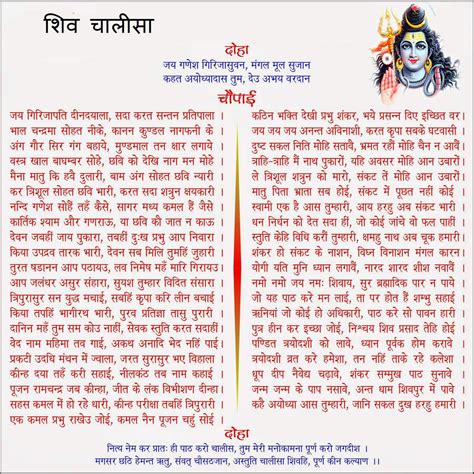 शिव चालीसा
दोहा
जय गणेश गिरिजासुवन, मंगल मूल सुजान
कहत अयोध्यादास तुम, देउ अभय वरदान
चौपाई
जय गिरिजापति दीनदयाला, सदा करत सन्तन प्रतिपाला ।
भाल चन्द्रमा सोहत नीके, कानन कुण्डल नागफनी के ।
अंग गौर सिर गंग बहाये, मुण्डमाल तन क्षार लगाये ।
वस्त्र खाल बाघम्बर सोहे, छवि को देखि नाग मन मोहे
मैना मातु कि हवै दुलारी, वाम अंग सोहत छवि न्यारी
कर त्रिशूल सोहत छवि भारी, करत सदा शत्रुन क्षयकारी
नन्दि गणेश सोहैं तहँ कैसे, सागर मध्य कमल हैं जैसे ।
कार्तिक श्याम और गणराऊ, या छवि की जात न काऊ
देवन जबहीं जाय पुकारा, तबहीं दुःख प्रभु आप निवारा ।
किया उपद्रव तारक भारी, देवन सब मिलि तुमहिं जुहारी
तुरत षडानन आप पठायउ, लव निमेष महँ मारि गिरायउ।
आप जलंधर असुर संहारा, सुयश तुम्हार विदित संसारा
त्रिपुरासुर सन युद्ध मचाई, सबहिं कृपा करि लीन बचाई
किया तपहिं भागीरथ भारी, पुरव प्रतिज्ञा तासु पुरारी ।
दानिन महँ तुम सम कोउ नाहीं, सेवक स्तुति करत सदाहीं
वेद नाम महिमा तव गाई, अकथ अनादि भेद नहिं पाई।
प्रकटी उदधि मंथन में ज्वाला, जरत सुरासुर भए विहाला
कीन्ही दया तहं करी सहाई, नीलकंठ तब नाम कहाई
पूजन रामचन्द्र जब कीन्हा, जीत के लंक विभीषण दीन्हा.
सहस कमल में हो रहे धारी, कीन्ह परीक्षा तबहिं त्रिपुरारी ।
एक कमल प्रभु राखेउ जोई, कमल नैन पूजन चहुं सोई ।
कठिन भक्ति देखी प्रभु शंकर, भये प्रसन्न दिए इच्छित वर।
जय जय जय अनन्त अविनाशी, करत कृपा सबके घटवासी ।
दुष्ट सकल निति मोहे सतावै, भ्रमत रहौं मोहि चैन न आवैं
त्राहि-त्राहि मैं नाथ पुकारों, यहि अवसर मोहि आन उबारों
ले त्रिशूल शत्रुन को मारो, संकट से मोहि आन उबारो ।
मातु पिता भ्राता सब होई, संकट में पूछत नहिं कोई ।
स्वामी एक है आस तुम्हारी, आय हरहु अब संकट भारी ।
धन निर्धन को देत सदा हीं, जो कोई जांचे वो फल पाहीं
स्तुति केहि विधि करौं तुम्हारी, क्षमहु नाथ अब चूक हमारी।
शंकर हो संकट के नाशन, विघ्न विनाशन मंगल कारन।
योगी यति मुनि ध्यान लगावैं, नारद शारद शीश नवावैं
नमो नमो जय नमः शिवाय, सुर ब्रह्मादिक पार न पाये
जो यह पाठ करे मन लाई, ता पर होत हैं शम्भु सहाई
ऋनियां जो कोई हो अधिकारी, पाठ करे सो पावन हारी
पुत्र हीन कर इच्छा जोई, निश्चय शिव प्रसाद तेहि होई
पण्डित त्रयोदशी को लावे, ध्यान पूर्वक होम करावे ।
त्रयोदशी व्रत करे हमेशा, तन नहिं ताके रहे कलेशा
धूप दीप नैवेद्य चढ़ावे, शंकर सम्मुख पाठ सुनावे ।
जन्म जन्म के पाप नसावे, अन्त धाम शिवपुर में पावे।
कहैं अयोध्या आस तुम्हारी, जानि सकल दुख हरहु हमारी।
दोहा
नित्य नेम कर प्रातः ही पाठ करो चालीस, तुम मेरी मनोकामना पूर्ण करो जगदीश ।
मगसर छठि हेमन्त ऋतु, संवत् चौसठजान, अस्तुति चालीसा शिवहि, पूर्ण कीन कल्याण ।।